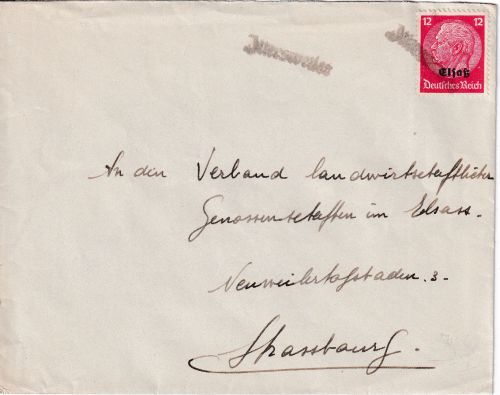 Ittersweiler
12 12
Elsaß
Deutsches Reich
An den Verband landwirtschaftlicher
Genossenschaften im Elsass.
Neuweilerhofstaden. 3.
Strassbourg.